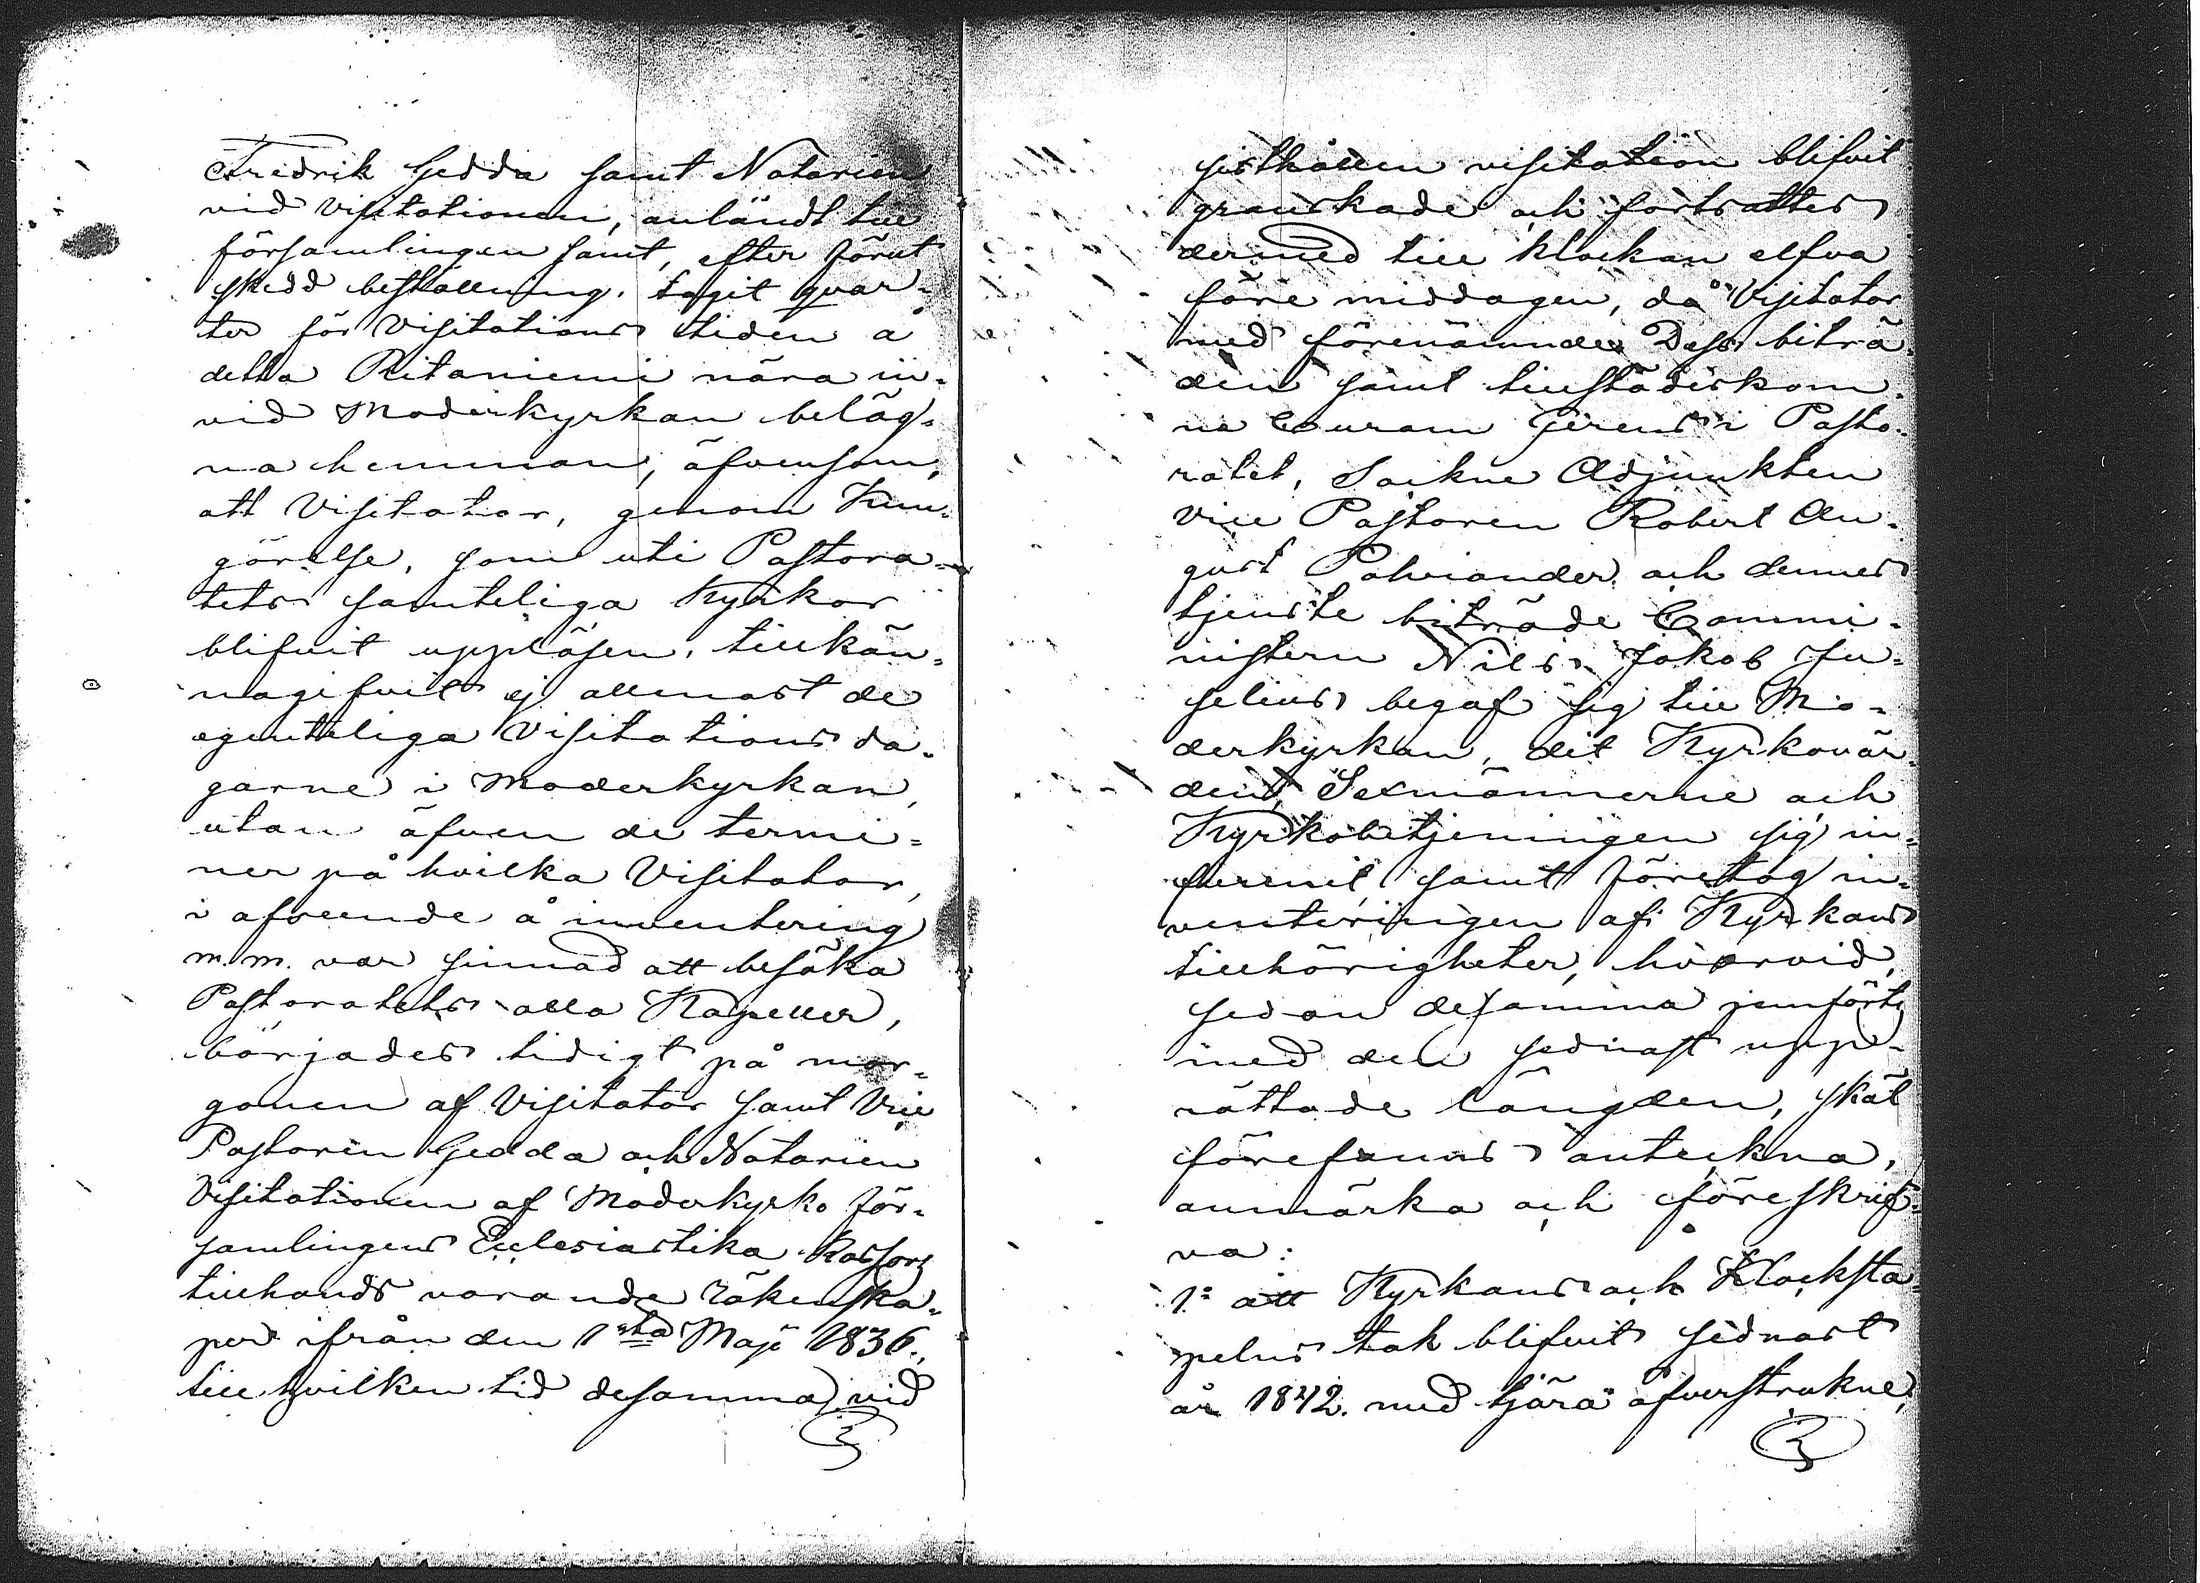 Fredrik Gedda samt Notarien
vid visitationen, anländt till
församlingen samt, efter förut
skedd beställning, tagit qvar-
ter för Visitations tiden å
detta Ritaniemi nära in-
vid Moderkyrkan beläg-
na hemman, äfvensom,
att Visitator, genom Kun-
görelse, som uti Pastora-
tets samteliga Kyrkor
blifvit uppläsen, tillkän-
nagifvit ej allenast de
egenteliga Visitations da-
garne i Moderkyrkan,
utan äfven de termi-
ner på hvilka Visitator,
i afseende å inventering
m.m. var sinnad att besöka
Pastoratets alla Kapeller,
börjades tidigt på mor-
gonen af Visitator samt Vice
Pastoren Gedda och Notarien
Visitationen af Moderkyrko för-
samlingens Ecclesiastika Kassors
tillhands varande räkenska-
per ifrån den 1sta Maji 1836.,
till hvilken tid desamma vid
sisthållen visitation blifvit
granskade och fortsattes
dermed till klockan elfva
före middagen, då Visitator
med förenämnde Dess biträ-
den samt tillstädeskom-
na Curam Gerens i Pasto-
ratet, Sockne Adjunkten
Vice Pastoren Robert Au-
gust Polviander och dennes
tjenste biträde Commi-
nistern Nils Jakob Ju-
selius begaf sig till Mo-
derkyrkan, dit Kyrkovär-
den, Sexmännerne och
Kyrkobetjeningen sig in-
funnit, samt företog in-
venteringen af Kyrkans
tillhörigheter, hvarvid,
sedan desamma jemförts
med den sednast upp-
rättade längden, skäl
förefanns anteckna,
anmärka och föreskrif-
va:
1:o att Kyrkans och Klocksta-
pelns tak blifvit sednast
år 1842. med tjära öfverstrukne,